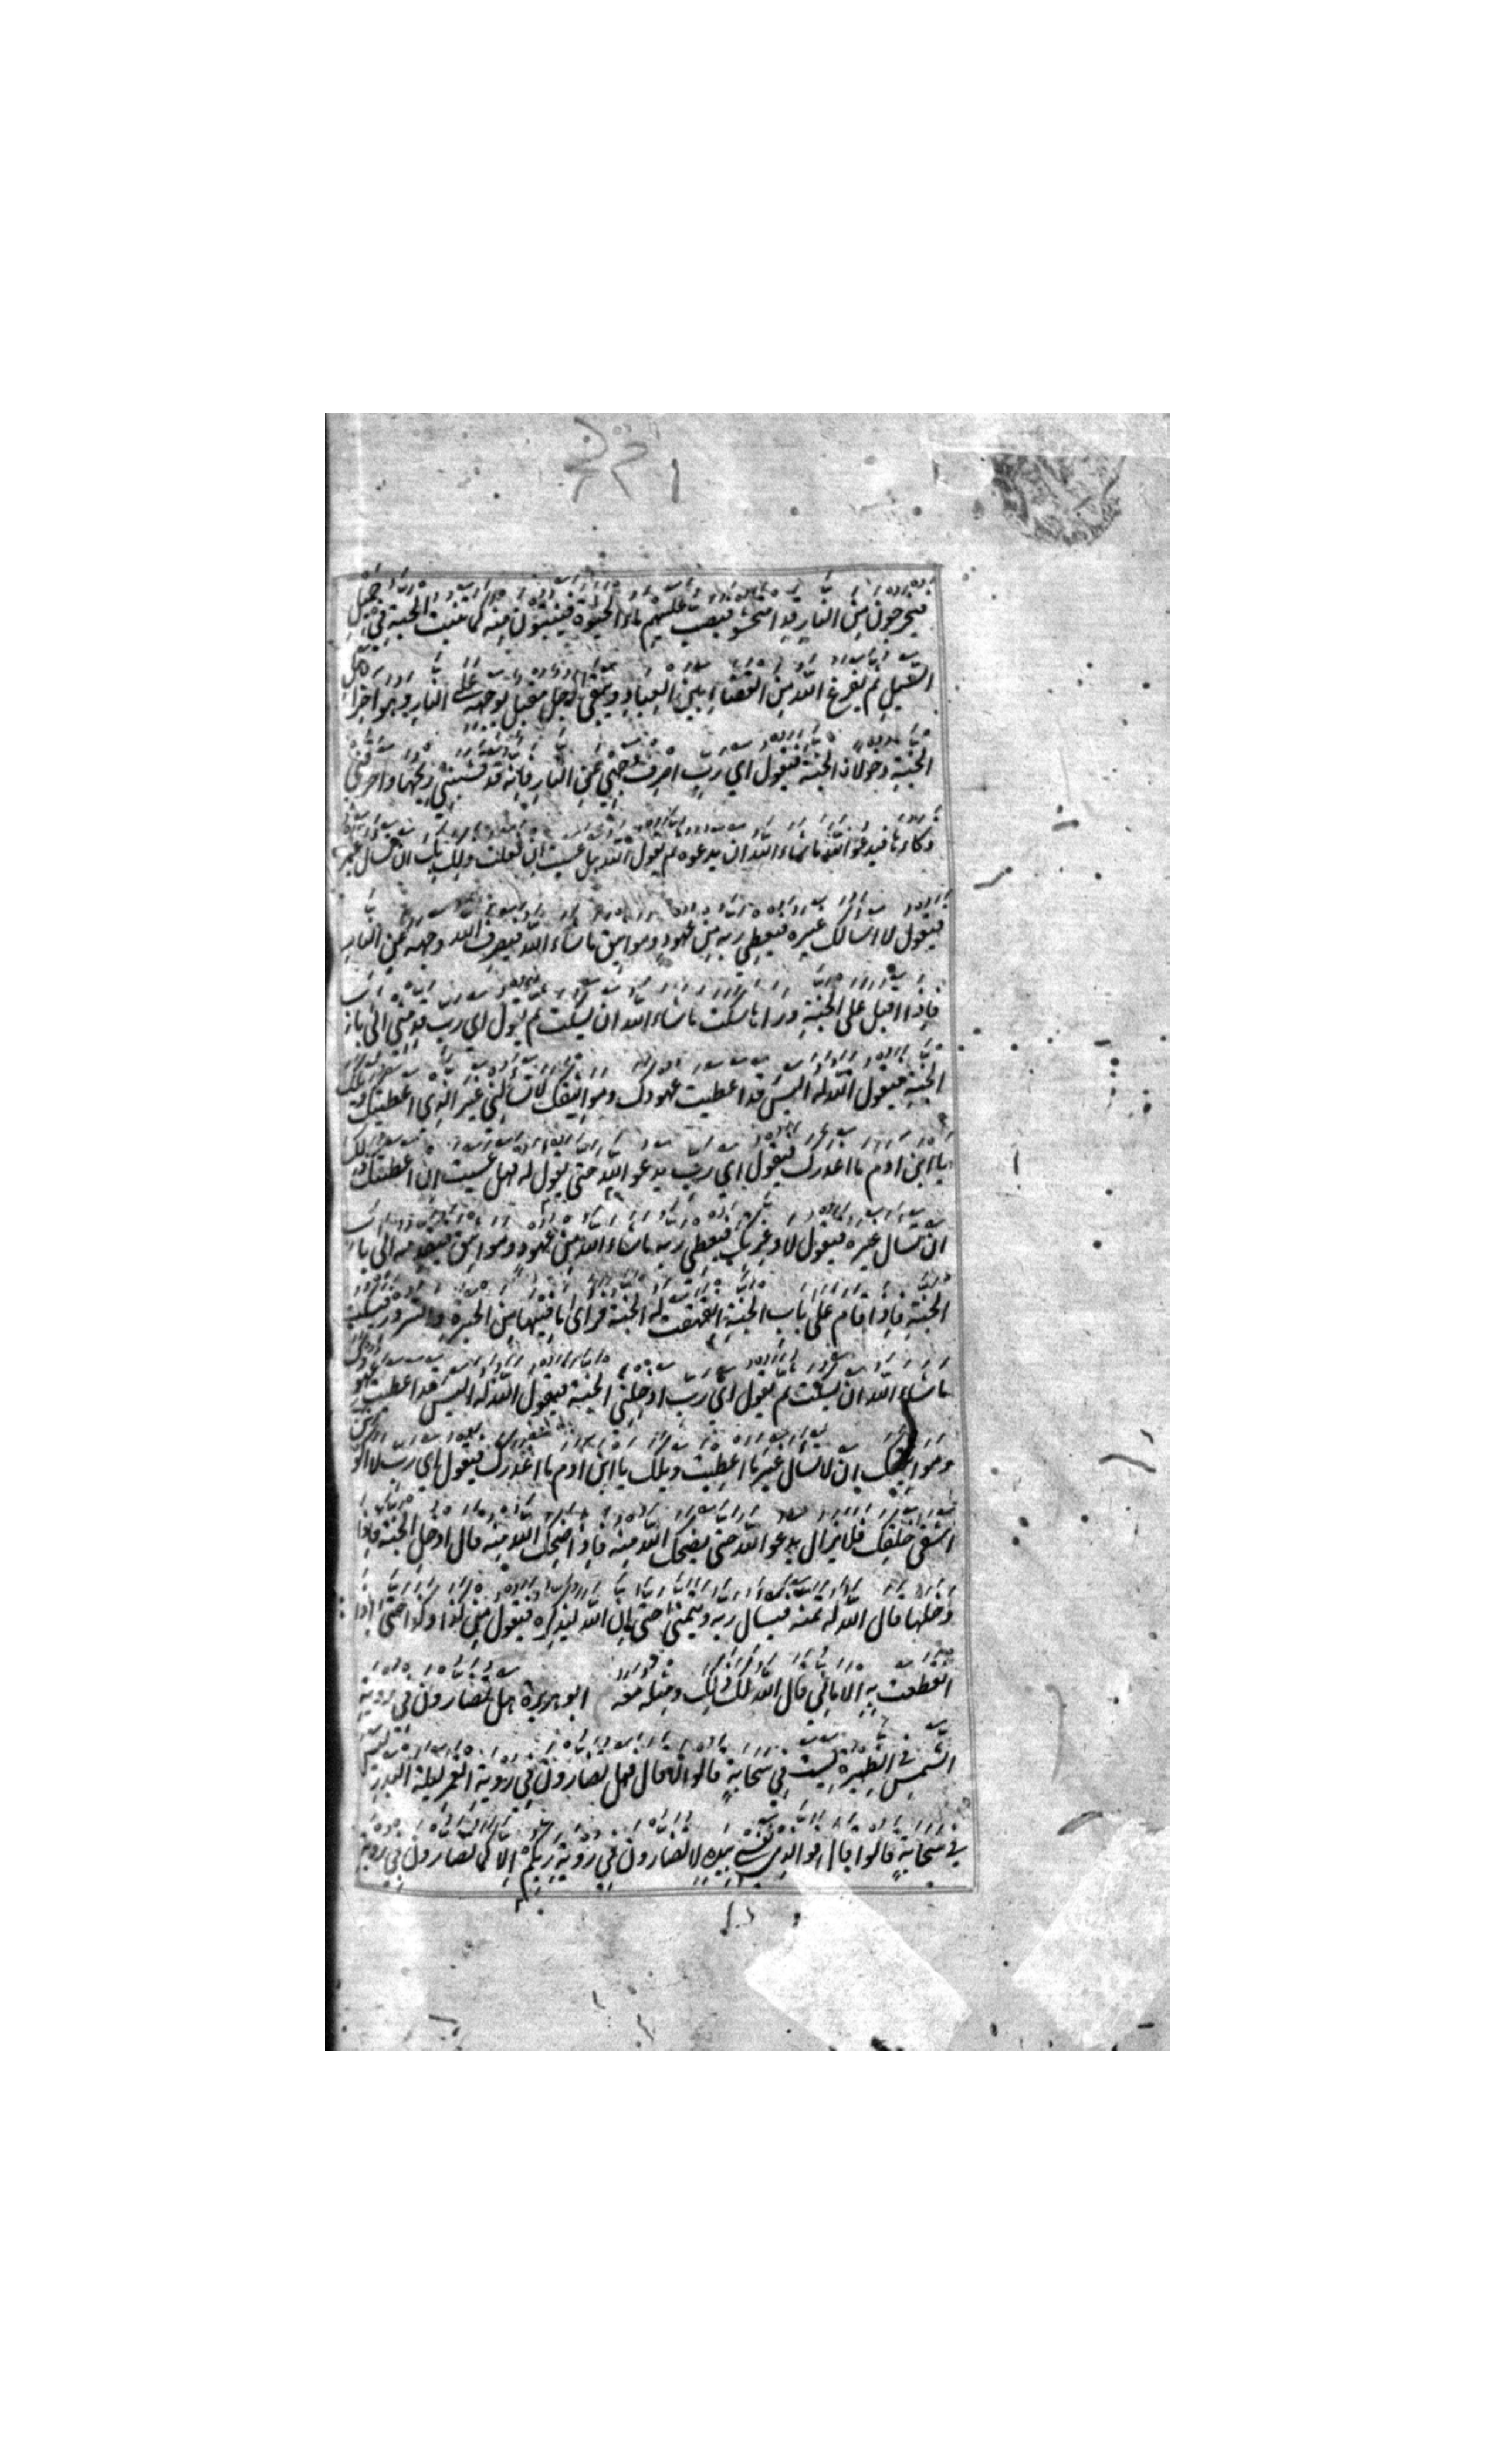 فيخرجون من النار قد امتحشوا فيصب عليهم ماء الحيوة فينبتون منه كما تنبت الحبة في حميل
السيل ثم يفرغ الله من القضاء بين العباد ويبقى رجل مقبل بوجهه على النار وهو اخر اهل
الجنة دخولا الجنة فيقول اي رب اصرف وجهي عن النار فانه قد قشبني ريحها واحرقني
ذكاءها فيدعو الله ما شاء الله ان يدعوه ثم يقول الله هل عسيت ان فعلت ذلك بك ان تسال غيره
فيقول لا اسالك غيره فيعطي ربه من عهود ومواثيق ما شاء الله فيصرف الله وجهه عن النار
فاذا اقبل على الجنة وراها سكت ما شاء الله ان يسكت ثم يقول اي رب قدمني الى باب
الجنة فيقول الله له اليس قد اعطيت عهودك ومواثيقك لا تسالني غير الذي اعطيتك ويلك
يا ابن ادم ما اغدرك فيقول اي رب يدعو الله حتى يقول له فهل عسيت ان اعطيتك ذلك
ان تسال غيره فيقول لا وعزتك فيعطي ربه ما شاء الله من عهود ومواثيق فيقدمه الى باب
الجنة فاذا قام على باب الجنة انفهقت له الجنة فراى ما فيها من الحبرة والسرور فيسكت
ما شاء الله ان يسكت ثم يقول اي رب ادخلني الجنة فيقول الله له اليس قد اعطيت عهودك
ومواثيقك ان لا تسال غير ما اعطيت ويلك يا ابن ادم ما اغدرك فيقول اي رب لا اكونن
اشقى خلقك فلا يزال يدعو الله حتى يضحك الله منه فاذا ضحك الله منه قال ادخل الجنة فاذا
دخلها قال الله له تمنه فيسال ربه ويتمنى حتى ان الله ليذكره فيقول من كذا وكذا حتى اذا
انقطعت به الاماني قال الله لك ذلك ومثله معه ابو هريرة هل تضارون في روية
الشمس في الظهيرة ليست في سحابة قالوا لا قال فهل تضارون في روية القمر ليلة البدر ليس
في سحابة قالوا لا قال فوالذي نفسي بيده لا تضارون في روية ربكم الا كما تضارون في روية